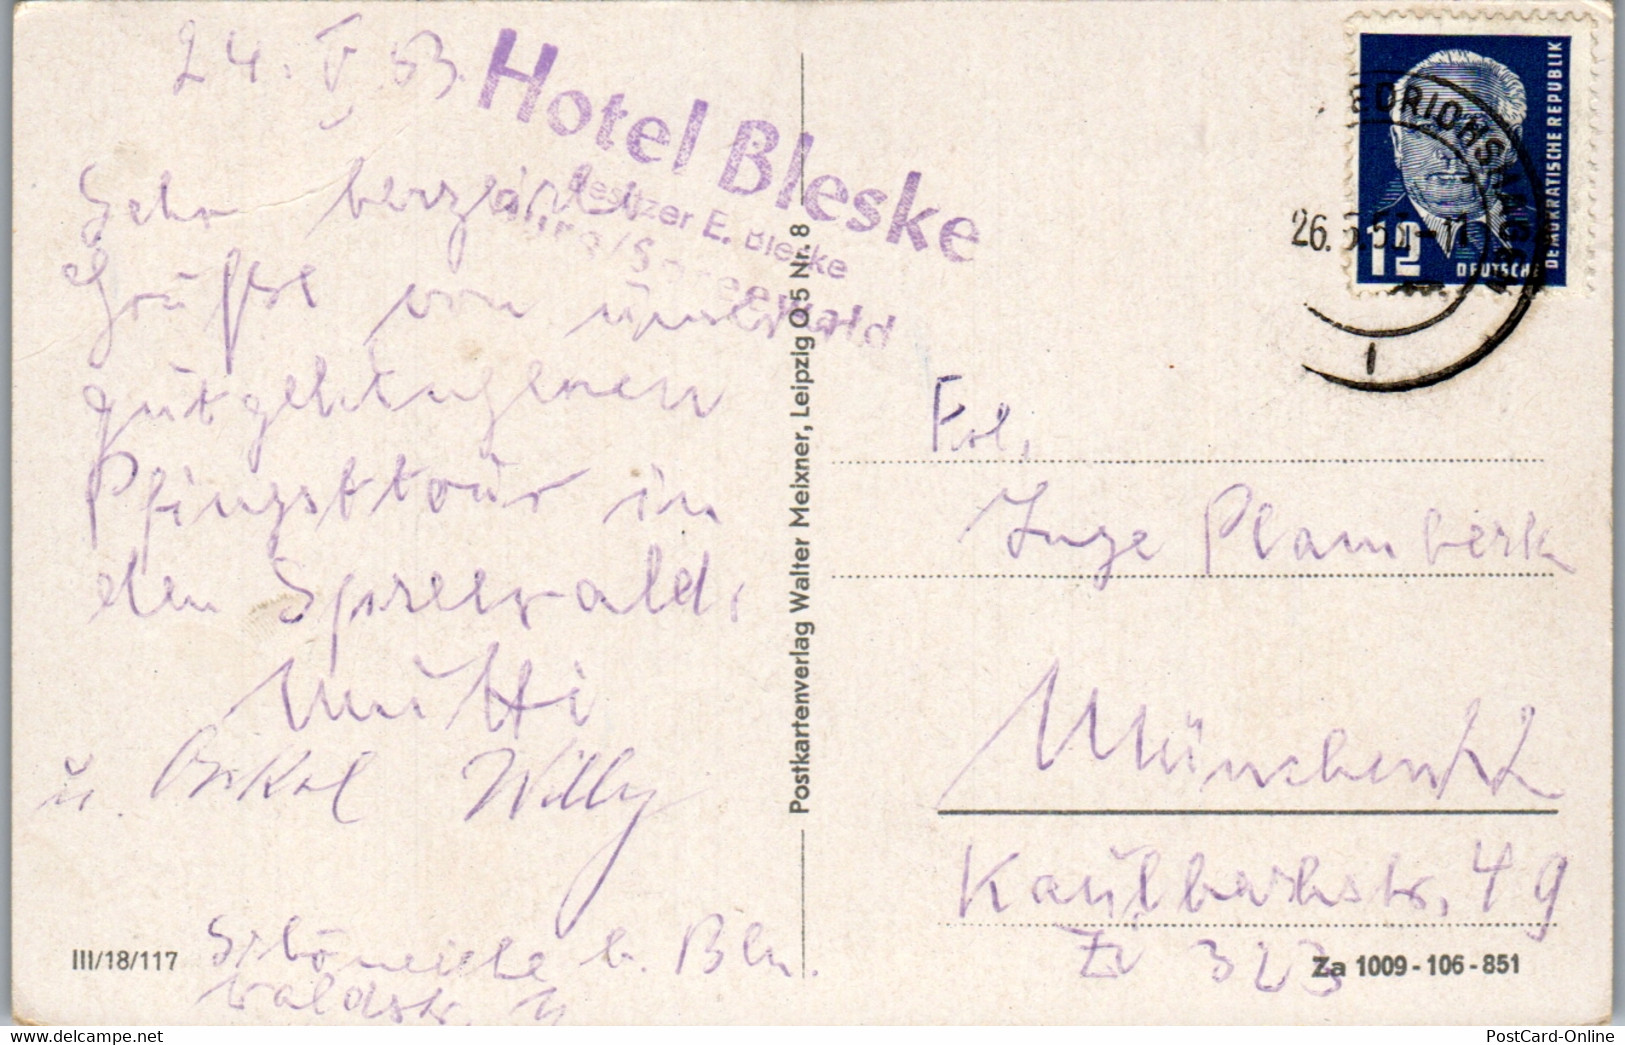 24. V 53.
Hotel Bleske
Besitzer E. Bleske
Sehr herzliche
Grüße von unserer
gutgelungenen
Pfingsttour in
den Spreewald,
Mutti
u. Onkel Willy
Schöneiche b. Bln.
Waldstr.
III/18/117
Postkartenverlag Walter Meixner, Leipzig O 5 Nr. 8
12
DEUTSCHE
DEMOKRATISCHE REPUBLIK
Frl.
Inge Plambeck
München
Kaulbachstr. 49
Zi 323
Za 1009-106-851
PostCard-Online
www.delcampe.net